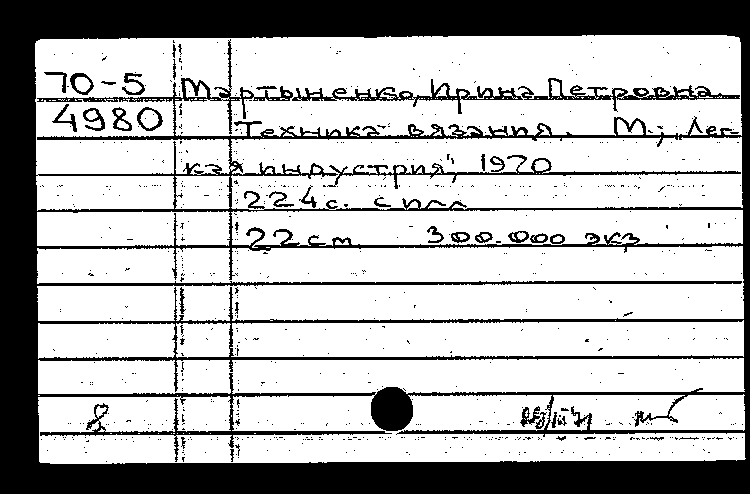 70-5 Мартыненко, Ирина Петровна.
4980 Техника вязания. М., „Лег-
кая индустрия", 1970
224с. с илл
22 см 300.000 экз.
8